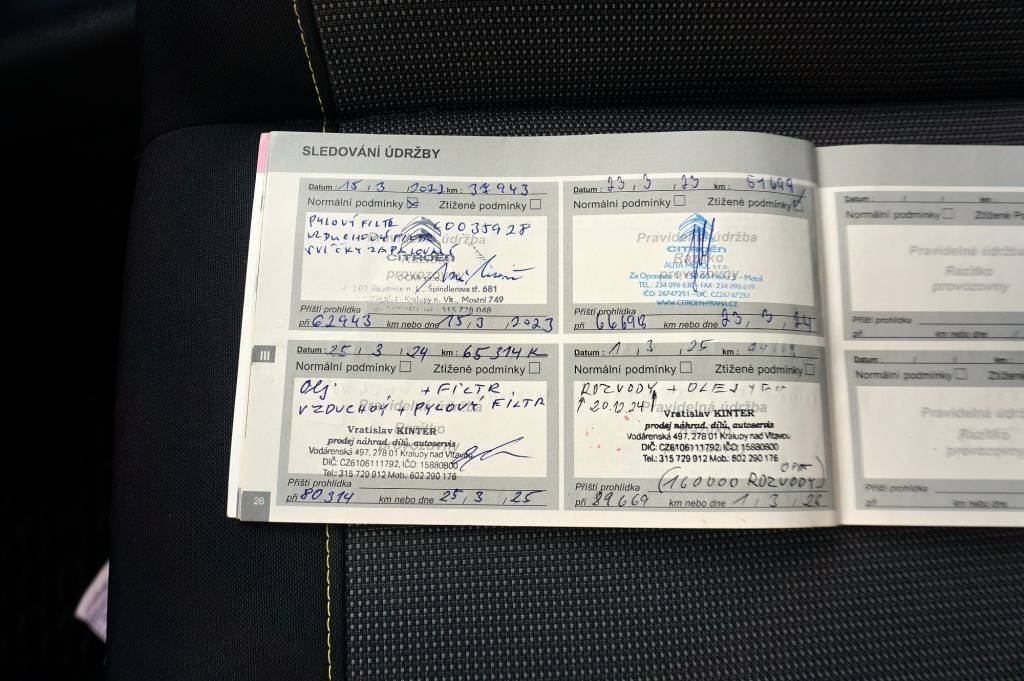 SLEDOVÁNÍ ÚDRŽBY
Datum : 15 , 3 , 2022 km : 37943
Normální podmínky Ztížené podmínky
PYLOVÝ FILTR CD035928
VZDUCHOVÝ FILTR
SVÍČKY ZAPALOVACÍ
CITROËN
Roudnice n. L., Špindlerova tř. 681
Kralupy n. Vlt., Mostní 749
Příští prohlídka
při 62943 km nebo dne 15 , 3 , 2023
Datum : 23 , 3 , 23 km : 51699
Normální podmínky Ztížené podmínky
Pravidelná údržba
Razítko
provozovny
CITROËN
Za Opravnou
TEL.: 234 096 630 FAX: 234 096 619
IČO: 26747251 DIČ: CZ26747251
WWW.CITROEN-PRAHA.CZ
Příští prohlídka
při 66698 km nebo dne 23 , 3 , 24
III
Datum : 25 , 3 , 24 km : 65314 K
Normální podmínky Ztížené podmínky
Olj + FILTR
VZDUCHOVÝ + PYLOVÝ FILTR
Vratislav KINTER
prodej náhrad. dílů, autoservis
Vodárenská 497, 278 01 Kralupy nad Vltavou
DIČ: CZ6106111792, IČO: 15880800
Tel.: 315 729 912 Mob.: 602 290 176
Příští prohlídka
při 80314 km nebo dne 25 , 3 , 25
Datum : 1 , 3 , 25 km :
Normální podmínky Ztížené podmínky
ROZVODY + OLEJ +
↑ 20.12.24
Vratislav KINTER
prodej náhrad. dílů, autoservis
Vodárenská 497, 278 01 Kralupy nad Vltavou
DIČ: CZ6106111792, IČO: 15880800
Tel.: 315 729 912 Mob.: 602 290 176
Příští prohlídka (160000 ROZVODY)
při 89669 km nebo dne 1 , 3 , 26
26
Datum : km :
Normální podmínky Ztížené
Pravidelná údržba
Razítko
provozovny
Příští prohlídka
při km nebo dne
Datum : km :
Normální podmínky
Pravidelná údržba
Razítko
provozovny
Příští prohlídka
při km nebo dne